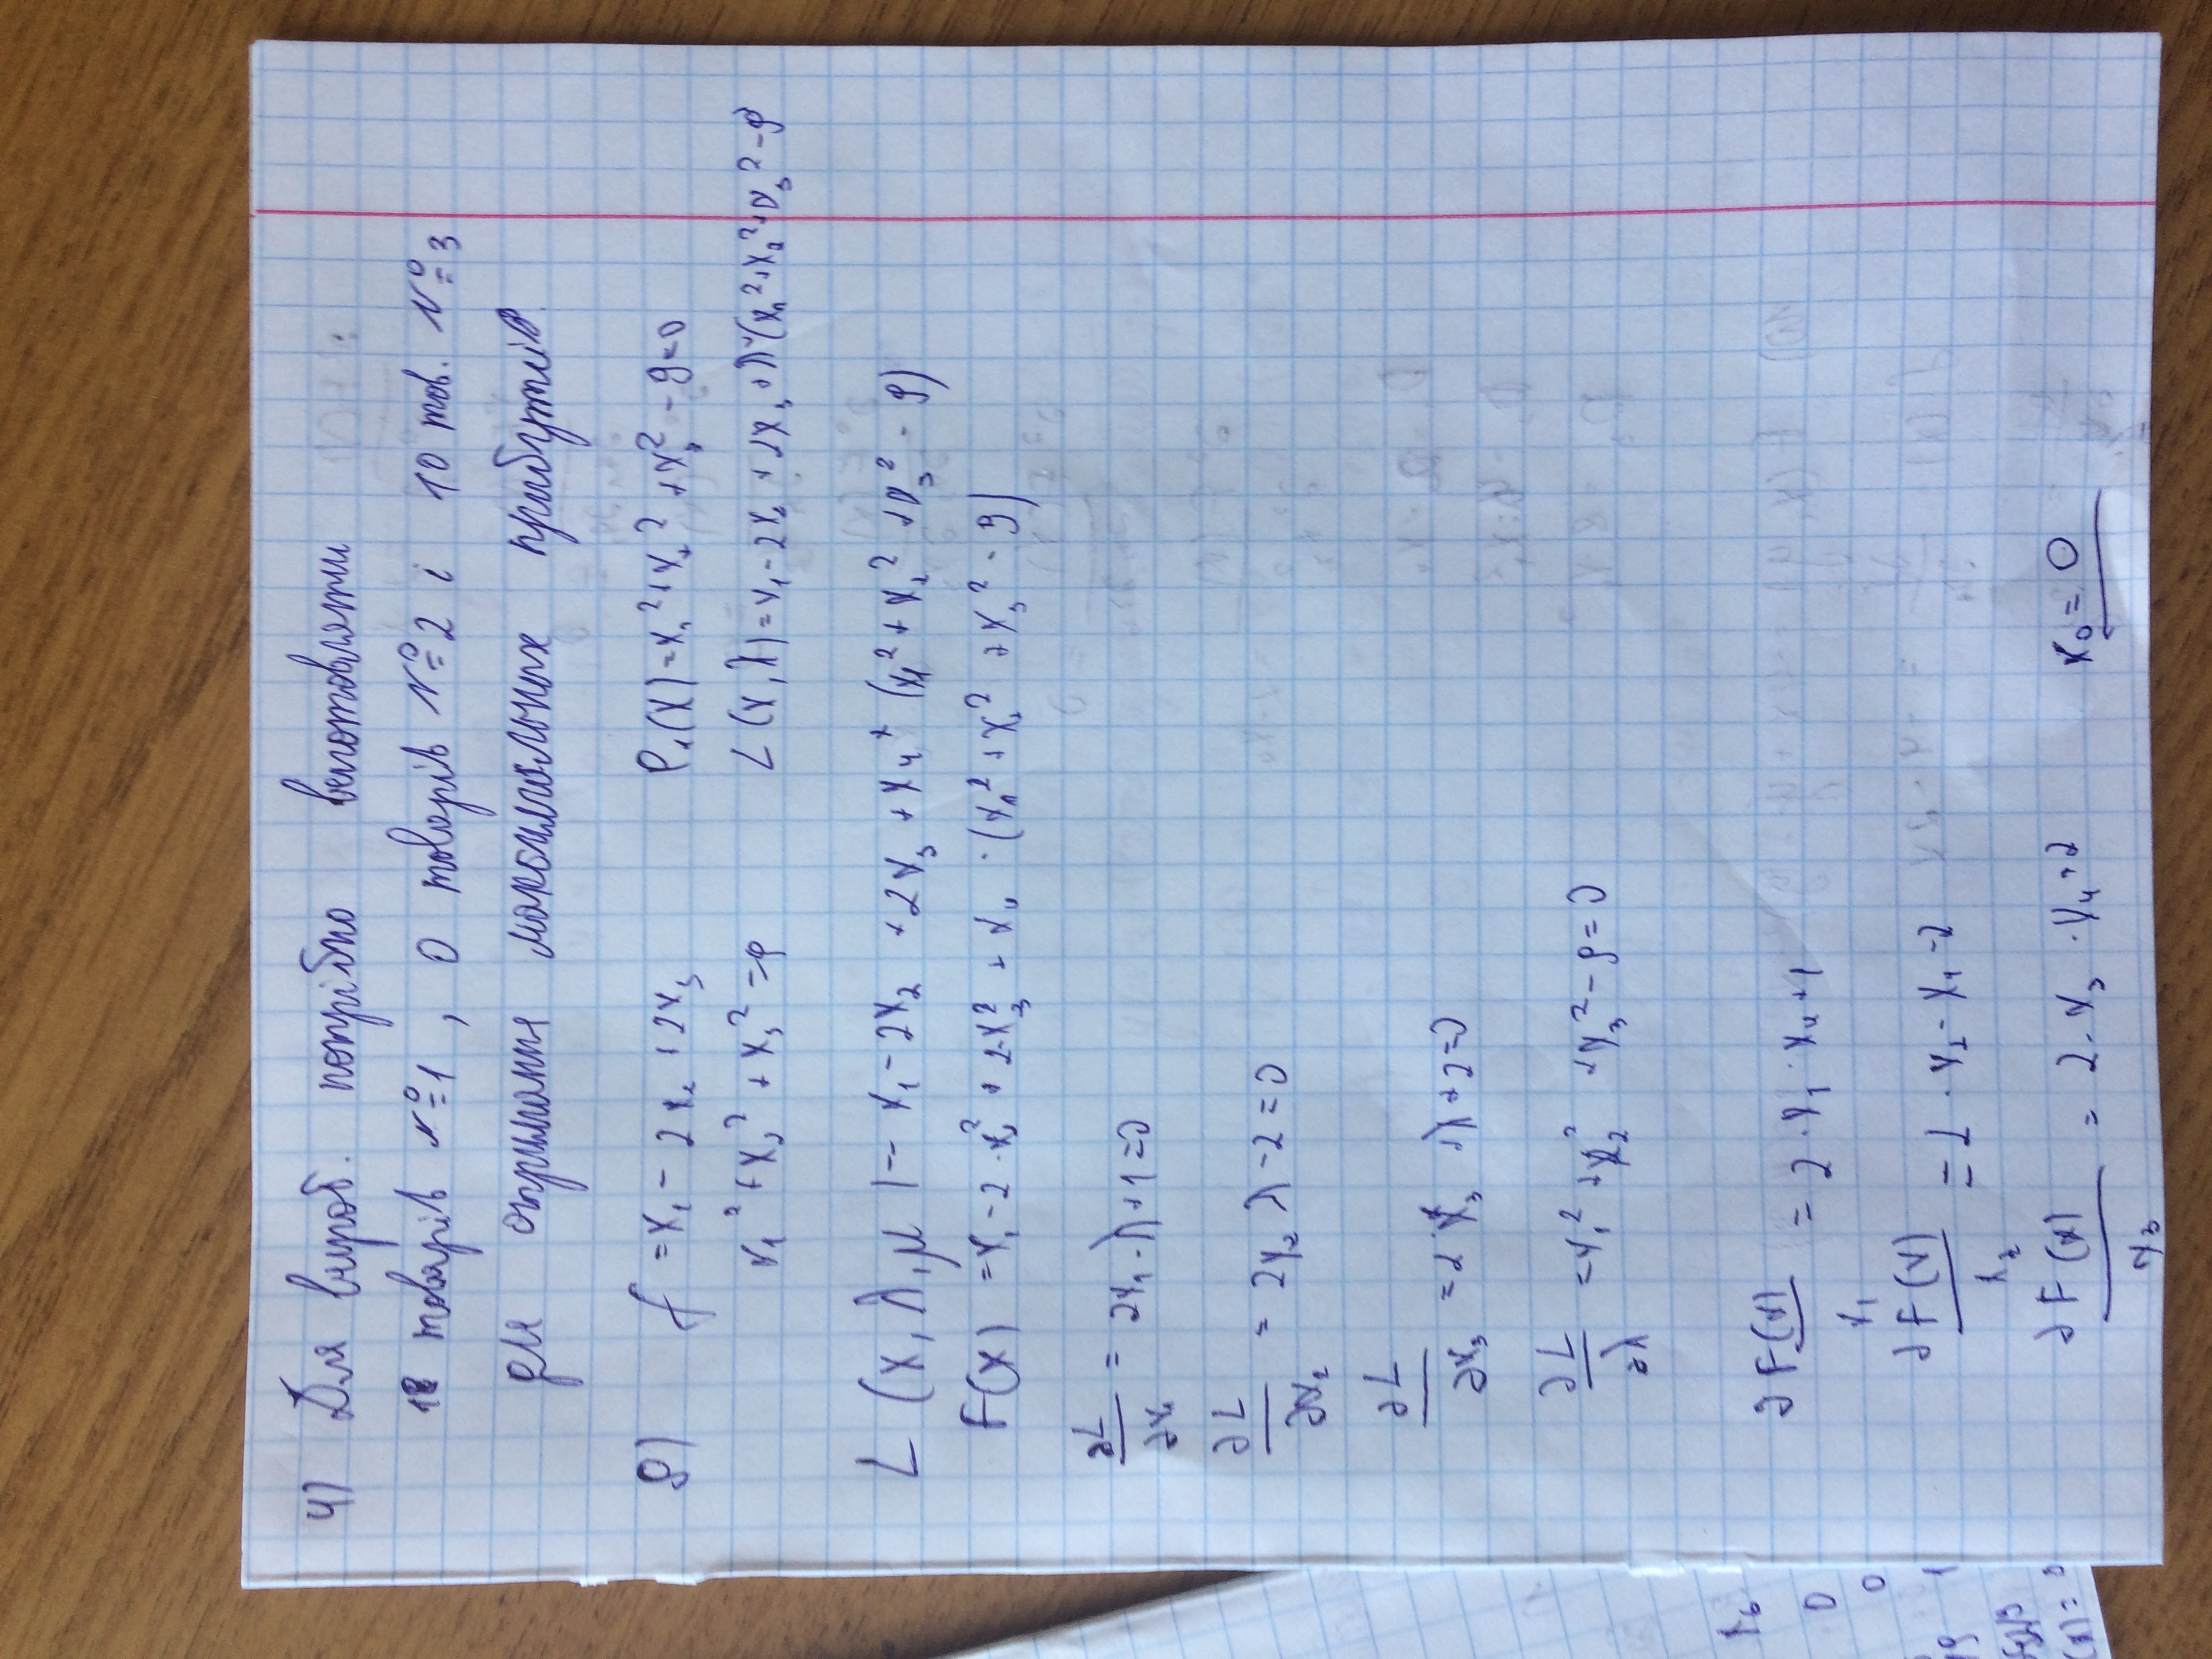 4) Для вироб. потрібно виготовляти :
18 товарів №1 , 0 товарів №2 і 10 тов. №3
для отримання максимальних прибутків.
8) f = x₁ - 2x₂ + 2x₃
x₁² + x₂² + x₃² = 9
φ₁(X) = x₁² + x₂² + x₃² - 9 = 0
L(x, λ) = x₁ - 2x₂ + 2x₃ + λ·(x₁² + x₂² + x₃² - 9)
L (x, λ, μ) = x₁ - 2x₂ + 2x₃ + x₄ * (x₁² + x₂² + x₃² - 9)
F(X) = x₁ - 2·x₂² + 2·x₃² + x₄ · (x₁² + x₂² + x₃² - 9)
∂L/∂x₁ = 2x₁ · λ + 1 = 0
∂L/∂x₂ = 2x₂ λ - 2 = 0
∂L/∂x₃ = 2·x₃ λ + 2 = 0
∂L/∂λ = x₁² + x₂² + x₃² - 9 = 0
∂F(x)/x₁ = 2·x₁·x₄ + 1
∂F(x)/x₂ = 2·x₂·x₄ - 2
∂F(x)/x₃ = 2·x₃·x₄ + 2
x₀ = 0
x₆
0
0
1
(x) =